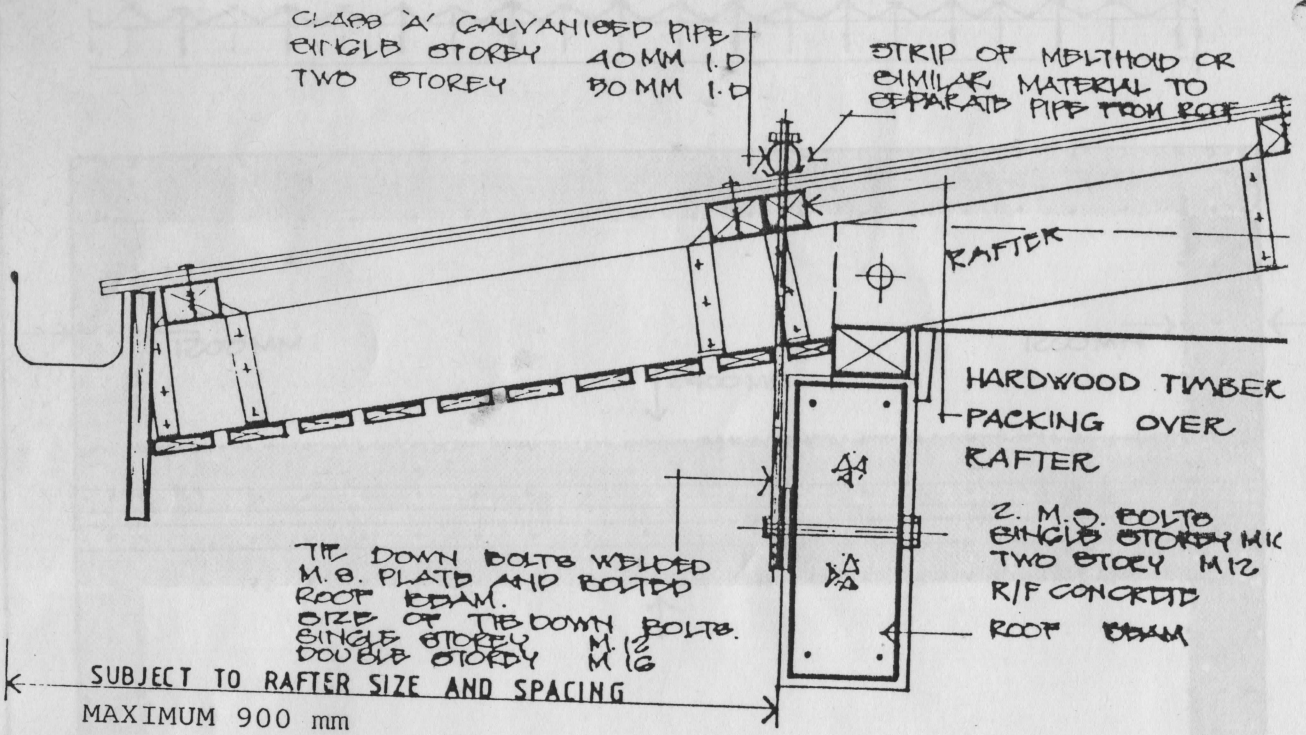 CLASS 'A' GALVANISED PIPE
SINGLE STOREY 40MM I.D
TWO STOREY 50MM I.D
STRIP OF MELTHOID OR
SIMILAR MATERIAL TO
SEPARATE PIPE FROM ROOF
RAFTER
HARDWOOD TIMBER
PACKING OVER
RAFTER
2. M.S. BOLTS
SINGLE STOREY
TWO STORY M12
R/F CONCRETE
ROOF BEAM
TIE DOWN BOLTS WELDED
M.S. PLATE AND BOLTED
ROOF BEAM.
SIZE OF TIE DOWN BOLTS.
SINGLE STOREY M.12
DOUBLE STOREY M 16
SUBJECT TO RAFTER SIZE AND SPACING
MAXIMUM 900 mm